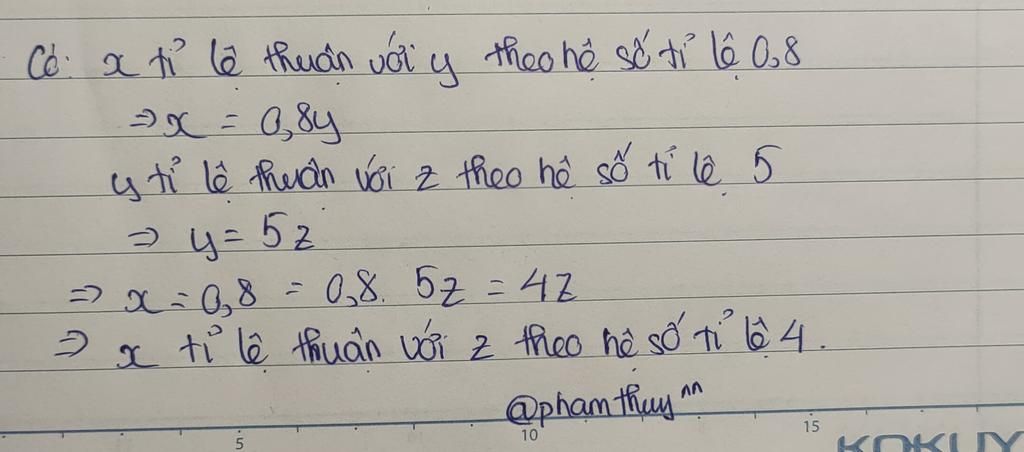 Có: x tỉ lệ thuận với y theo hệ số tỉ lệ 0,8
⇒ x = 0,8y
y tỉ lệ thuận với z theo hệ số tỉ lệ 5
⇒ y = 5z
⇒ x = 0,8 = 0,8. 5z = 4z
⇒ x tỉ lệ thuận với z theo hệ số tỉ lệ 4.
@phamthuy^^
5 10 15
KOKUY